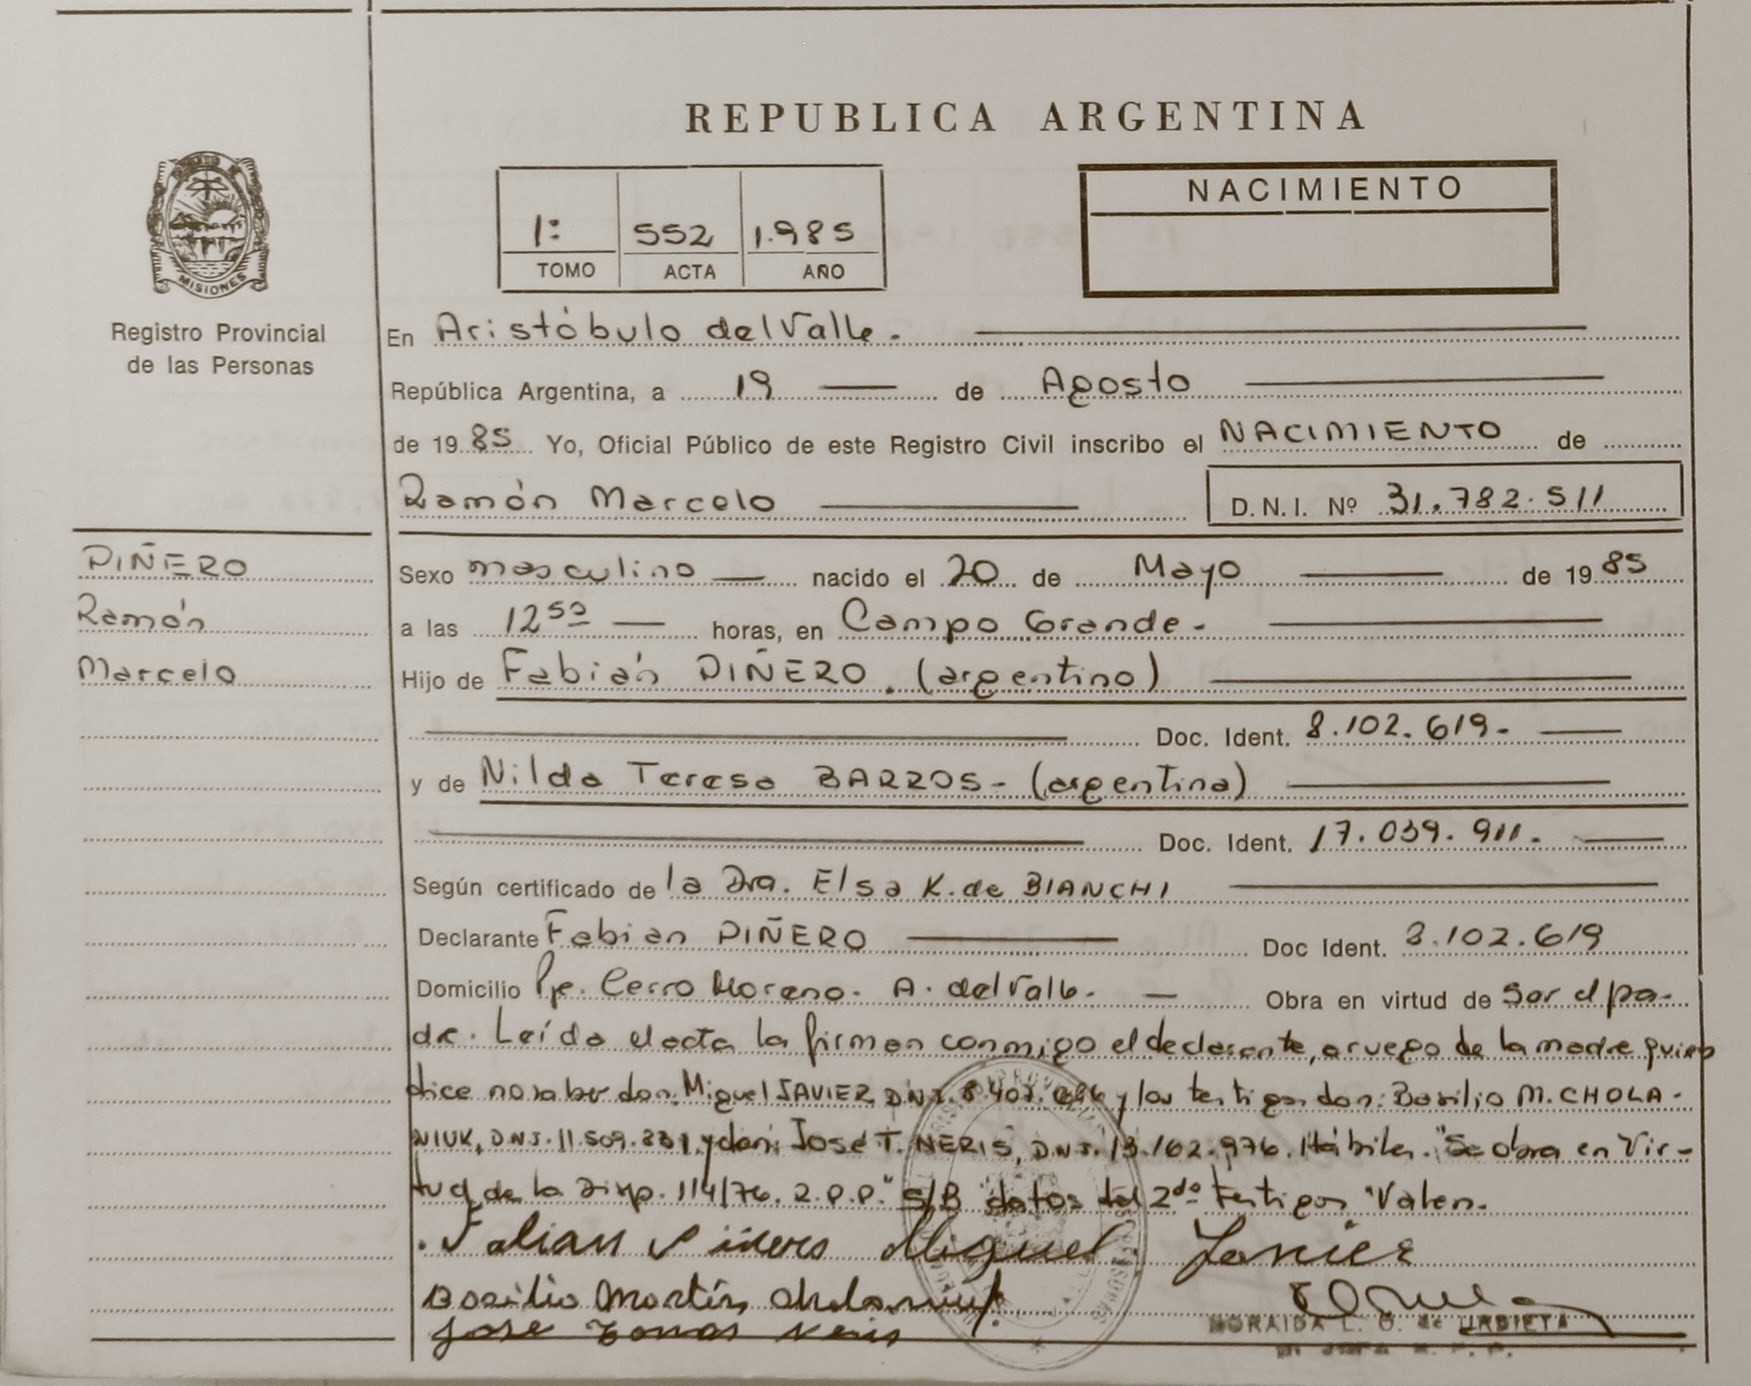 REPUBLICA ARGENTINA
NACIMIENTO
1º 552 1.985
TOMO ACTA AÑO
MISIONES
Registro Provincial
de las Personas
En Aristóbulo del Valle.
República Argentina, a 19 de Agosto
de 1985 Yo, Oficial Público de este Registro Civil inscribo el NACIMIENTO de
Ramón Marcelo D.N.I. Nº 31.782.511
PIÑERO
Ramón
Marcelo
Sexo masculino nacido el 20 de Mayo de 1985
a las 12⁵⁰ horas, en Campo Grande.
Hijo de Fabián PIÑERO. (argentino)
Doc. Ident. 8.102.619.
y de Nilda Teresa BARROS - (argentina)
Doc. Ident. 17.039.911.
Según certificado de la Dra. Elsa K. de BIANCHI
Declarante Fabian PIÑERO Doc Ident. 8.102.619
Domicilio Pje. Cerro Moreno. A. del Valle. Obra en virtud de Ser el pa-
dre. Leída el acta la firman conmigo el declarante, a ruego de la madre quien
dice no saber don: Miguel JAVIER D.N.I. 8.407. y los testigos don: Basilio M. CHOLA-
NIUK, D.N.I. 11.509.331 y don: José T. NERIS, D.N.I. 13.162.976. Hábiles. "Se obra en Vir-
tud de la Disp. 114/76. R.P.P." S/B datos del 2do testigos "Valen.
Fabian Piñero Miguel Javier
Basilio Martín Cholaniuk
Jose Tomas Neris
NORAIDA L. O. de URBIETA